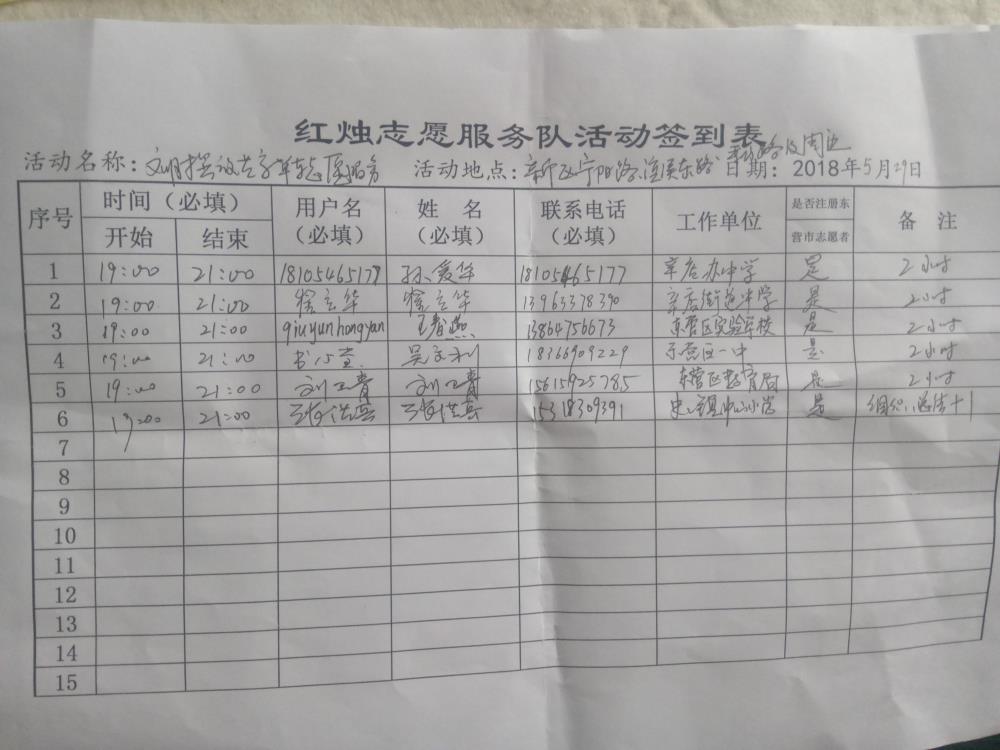 红烛志愿服务队活动签到表
活动名称：文明 共享单车志愿服务 活动地点：新区宁阳路 东路 路及周边 日期：2018年5月29日
序号 时间（必填） 用户名（必填） 姓 名（必填） 联系电话（必填） 工作单位 是否注册东营市志愿者 备 注
开始 结束
1 19:00 21:00 18105465177 孙爱华 18105465177 辛店办中学 是 2小时
2 19:00 21:00 立华 立华 13963378390 辛店街道中学 是 2小时
3 19:00 21:00 qiuyunhongyan 王春燕 13864756673 东营区实验学校 是 2小时
4 19:00 21:00 吴 利 18366909229 东营区一中 是 2小时
5 19:00 21:00 刘卫青 刘卫青 15615925785 东营区教育局 是 2小时
6 19:00 21:00 张洪 张洪 15318309391 史口镇中心小学 是
7
8
9
10
11
12
13
14
15